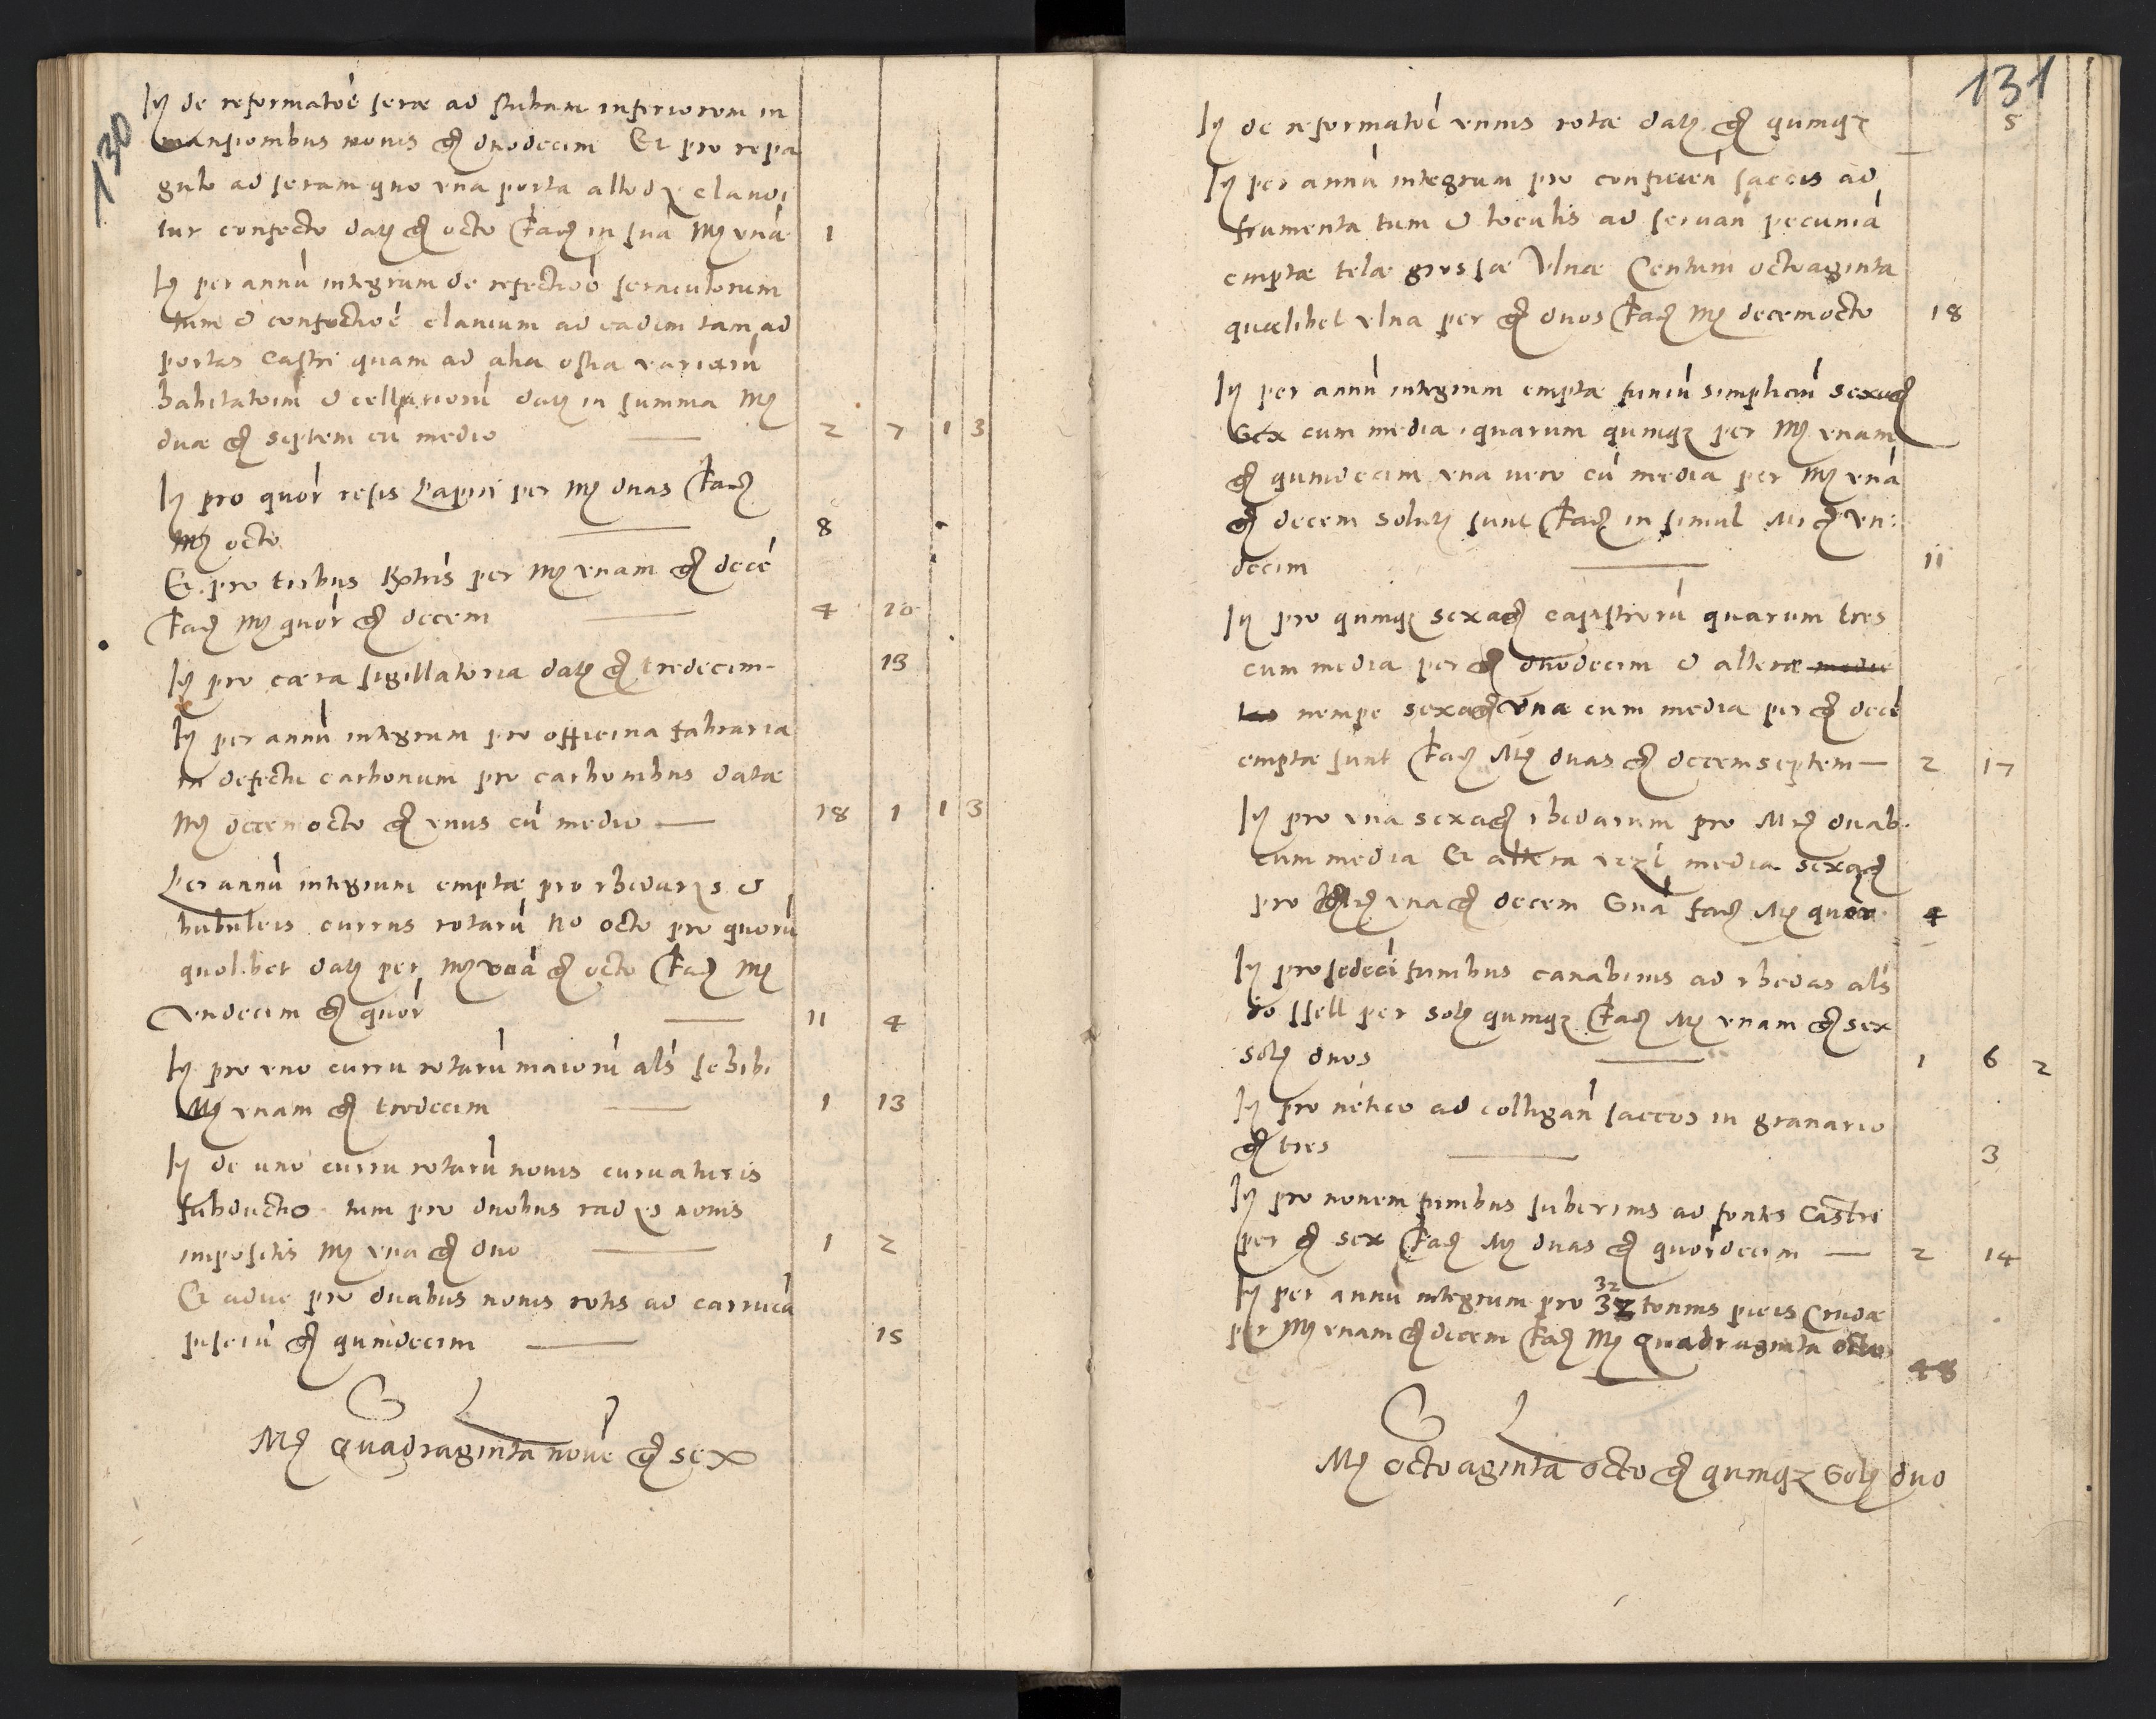 130
It de reformatoe serae ad stubam inferiorem in
mansionibus nouis gr duodecim Et pro repa
gulo ad seram quo vna porta allody claudi
tur confecto dat gr octo fac in sua Mr vna 1
It per annu integrum de refectioe seraculorum
tum et confectioe clauium ad eadem tam ad
portas Castri quam ad alia ostia variaru
habitatoim et cellarioru dat in summa Mr
duae gr septem cu medio 2 7 1 3
It pro quor resis Papiri per Mr duas fac
Mr octo 8
Et pro tribus per Mr vnam gr dece
fac Mr quor gr decem 4 10
It pro caera sigillatoria dat gr tredecim 13
It per annu integrum pro officina fabraria
in defectu carbonum pro carbonibus datae
Mr decemocto gr vnus cu medio 18 1 1 3
Per annu integrum emptae pro rhedarys et
bubuleis currus rotaru No octo pro quoru
quolibet dat per Mr vna gr octo fac Mr
vndecim gr quor 11 4
It pro vno curru rotaru maioru als schibi
Mr vnam gr tredecim 1 13
It de uno curru rotaru nouis curuaturis
subducto tum pro duobus radys nouis
impositis Mr vna gr duo 1 2
Et aduc pro duabus nouis rotis ad carruca
pisciu gr quindecim 15
Mr quadraginta noue gr sex
131
It de reformatoe vnius rotae dat gr quinq 5
It per annu integrum pro conficien saccis ad
frumenta tum et loculis ad seruan pecunia
emptae telae grossae Vlnae Centum octoaginta
quaelibet vlna per gr duos fac Mr decemocto 18
It per annu integrum emptae funiu simpliciu sexag
Sex cum media quarum quinq per Mr vnam
gr quindecim vna uero cu media per Mr vna
gr decem solut sunt fac in simul Mr vn
decim 11
It pro quinq sexag capistroru quarum tres
cum media per gr duodecim et alterae medie
tas nempe sexag vnae cum media per gr dece
emptae sunt fac Mr duas gr decemseptem 2 17
It pro vna sexag rhedarum pro Mr duab
cum media Et altera media sexag
pro Mr vna gr decem fac Mr quor 4
It pro sedeci funibus canabinis ad rhedas als
ro ssell per sol quinq fac Mr vnam gr sex
sol duos 1 6 2
It pro netico ad colligan saccos in granario
gr tres 3
It pro nouem funibus suberinis ad fontes Castri
per gr sex fac Mr duas gr quordecim 2 14
It per annu integrum pro 32 32 tonnis picis Crudae
per Mr vnam gr decem fac Mr quadraginta octo
48
Mr octoaginta octo gr quinq Sol duo